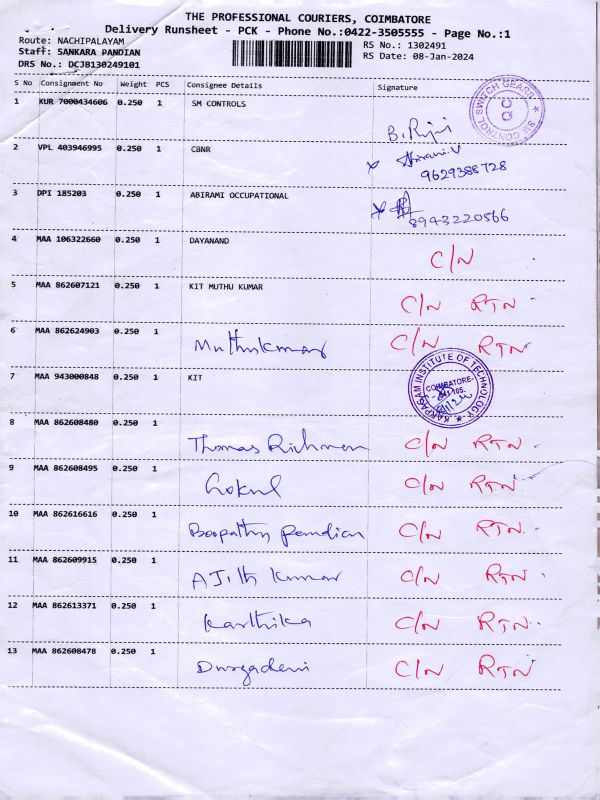 THE PROFESSIONAL COURIERS, COIMBATORE
Delivery Runsheet - PCK - Phone No.:0422-3505555 - Page No.:1
Route: NACHIPALAYAM
RS No.: 1302491
Staff: SANKARA PANDIAN
RS Date: 08-Jan-2024
DRS No.: DCJB130249101
S No Consignment No Weight PCS Consignee Details Signature
1 KUR 7000434606 0.250 1 SM CONTROLS
SM CONTROL SWITCH GEARS
QC
2 VPL 403946995 0.250 1 CBNR
Abirami.V
9629388728
3 DPI 185203 0.250 1 ABIRAMI OCCUPATIONAL
8943220566
4 MAA 106322660 0.250 1 DAYANAND C/N
5 MAA 862607121 0.250 1 KIT MUTHU KUMAR C/N RTN
6 MAA 862624903 0.250 1 Muthukumar C/N RTN
7 MAA 943000848 0.250 1 KIT
KARPAGAM INSTITUTE OF TECHNOLOGY
COIMBATORE-
641 105.
8 MAA 862608480 0.250 1 Thomas Richman C/N RTN
9 MAA 862608495 0.250 1 Gokul C/N RTN
10 MAA 862616616 0.250 1 Boopathy pandian C/N RTN
11 MAA 862609915 0.250 1 AJith kumar C/N RTN
12 MAA 862613371 0.250 1 Karthika C/N RTN
13 MAA 862608478 0.250 1 Durgadevi C/N RTN